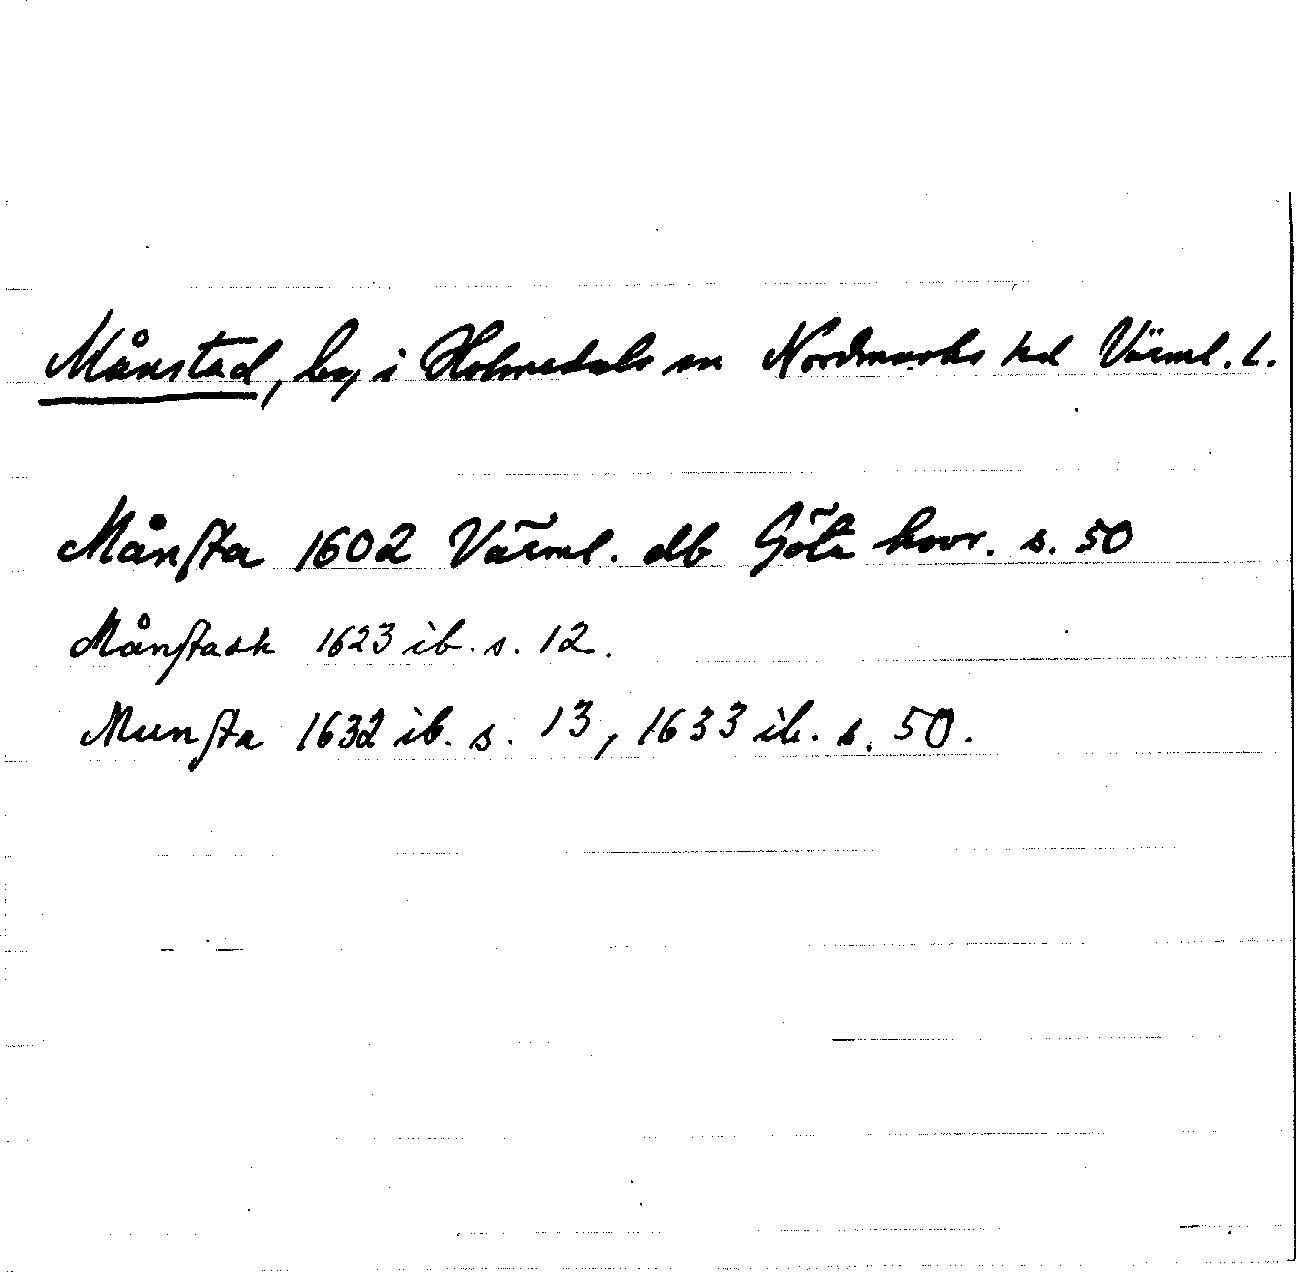 Månstad, by i Holmedals sn Nordmarks hd Värml. l.
Månsta 1602 Värml. db Göta hovr. s. 50
Månstadh 1623 ib. s. 12.
Munsta 1632 ib. s. 13, 1633 ib. s. 50.